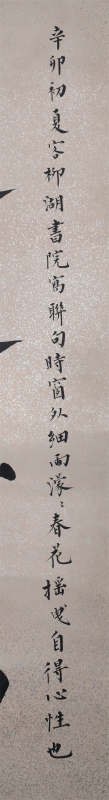 辛卯初夏客柳湖書院寫聯句時窗外細雨濛〻春花搖曳自得心性也